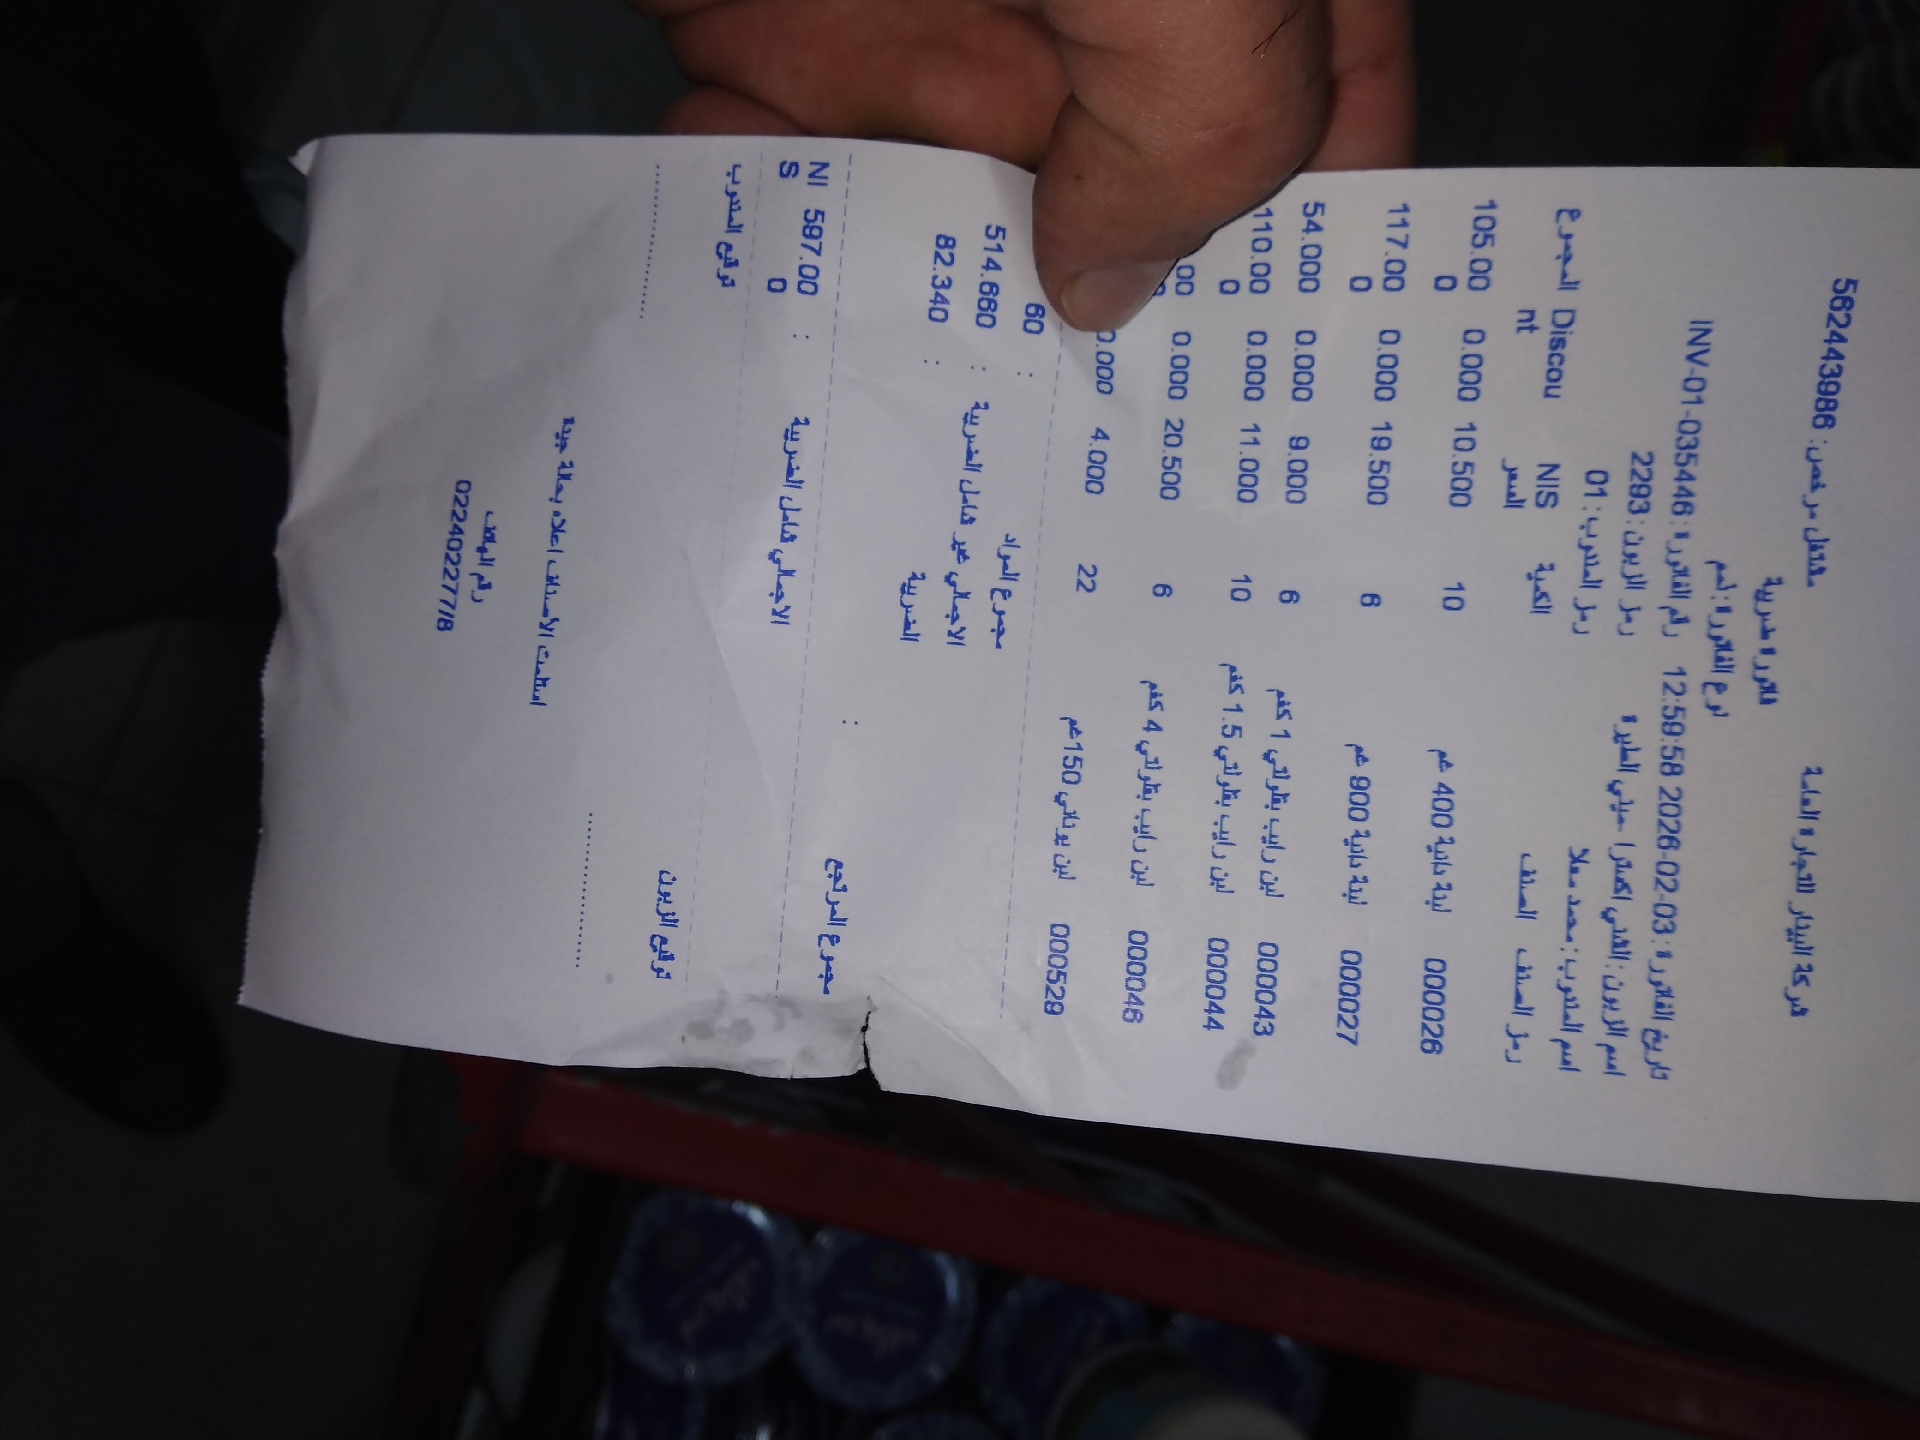 شركة البيدار للتجارة العامة
مشتغل مرخص: 562443986
فاتورة ضريبية
نوع الفاتورة: ذمم
تاريخ الفاتورة: 2026-02-03 12:59:58 رقم الفاتورة: INV-01-035446
اسم الزبون: الشني اكسترا حيني الطيرة رمز الزبون: 2293
اسم المندوب: محمد معلا رمز المندوب: 01
رمز الصنف الصنف الكمية السعر NIS Discount المجموع
000026 لبنة دانية 400 غم 10 10.500 0.000 105.000
000027 لبنة دانية 900 غم 6 19.500 0.000 117.000
000043 لبن رايب بقلولتي 1 كغم 6 9.000 0.000 54.000
000044 لبن رايب بقلولتي 1.5 كغم 10 11.000 0.000 110.000
000046 لبن رايب بقلولتي 4 كغم 6 20.500 0.000
000529 لبن يوناني 150غم 22 4.000 0.000
مجموع المواد : 60
الاجمالي غير شامل الضريبة : 514.660
الضريبة : 82.340
مجموع المرتجع :
الاجمالي شامل الضريبة : 597.000 NIS
توقيع الزبون توقيع المندوب
استلمت الاصناف اعلاه بحالة جيدة
رقم الهاتف
022402277/8